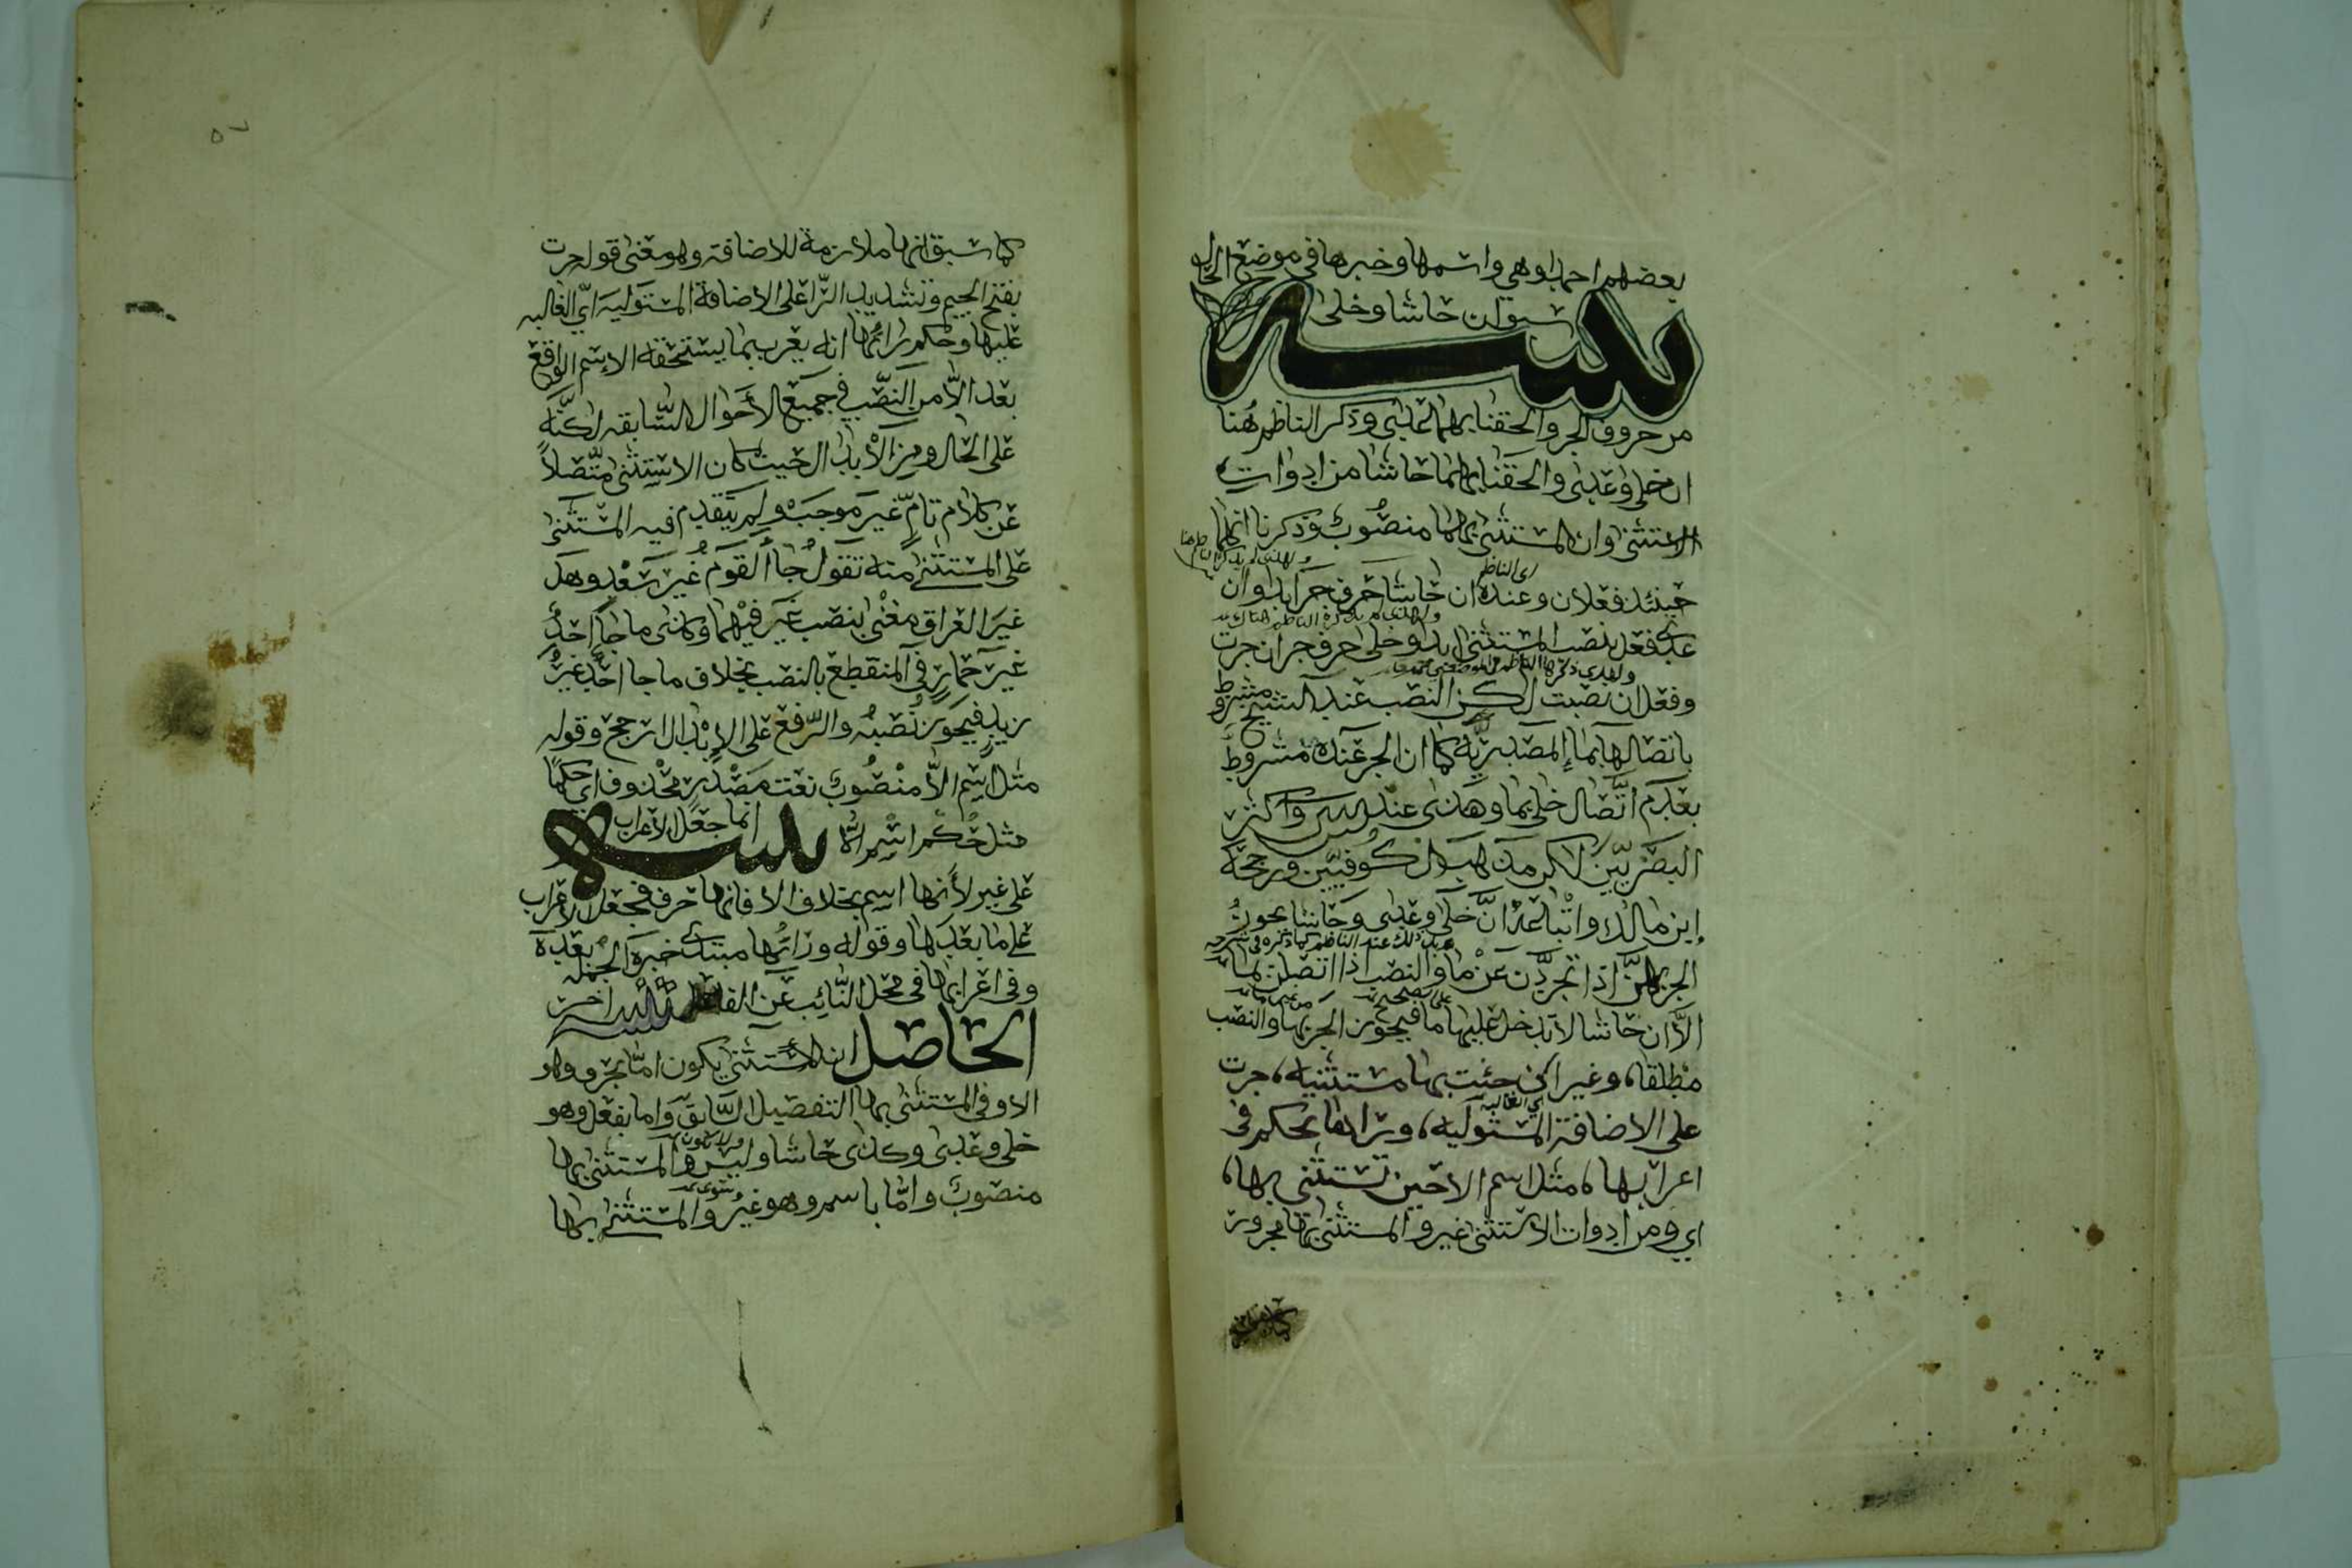 بعضهم احدا وهي واسمها وخبرها في موضع الحال
تنبيه
سبق ان حاشا وخلى
من حروف الجر والحقنا بهما عدى وذكر الناظم هنا
ان خلى وعدى والحقنا بهما حاشا من ادوات
الاستثنى وان المستثنى بهما منصوب وذكرنا انهما
اى الناظم
حينئذ فعلان وعنده ان حاشا حرف جر ابدا وان
عدى فعل بنصب المستثنى ابدا وخلى حرف جر ان جرت
وفعل ان نصبت لكن النصب عند الشيخ مشروط
باتصالها بما المصدريّه كما ان الجر عنده مشروط
بعدم اتّصال خلى بما وهذى عند س واكثر
البصريّين لكن مذهب الكوفيين ورجحه
ابن مالك واتباعه انّ خلى وعدى وحاشا يجوز
الجر بهنّ اذا تجرّدن عن ما والنصب اذا اتصلن بها
الاّ ان حاشا لا تدخل عليها ما فيجوز الجر بها والنصب
مطلقا، وغير ان جئت بها مستثنيه، جرت
اي الغالبه
على الاضافة المستوليه، وراؤها يحكم في
اعرابها، مثل اسم الا حين تستثنى بها،
اي ومن ادوات الاستثنى غير والمستثنى بها مجرور
كما سبق انها ملازمة للاضافة وهو معنى قوله جرت
بفتح الجيم وتشديد الرّا على الاضافة المستوليه ايّ الغالبه
عليها وحكم رائها انه يعرب بما يستحقه الاسم الواقع
بعد الاّ من النّصب في جميع الأحوال السّابقه لكنّه
على الحال ومن الابدال حيث كان الاستثنى متّصلاً
عن كلام تامّ غير موجب ولم يتقدم فيه المستثنى
على المستثنى منه تقول جاأ القوم غير سعد وهل
غير العراق مغنى بنصب غير فيهما وكذى ما جاأ احدٌ
غير حمار في المنقطع بالنصب بخلاف ما جا احد غير
زيد فيجوز نصبه والرّفع على الابدال ارجح وقوله
مثل اسم الاّ منصوب نعت مصدر محذوف اي حكمًا
مثل حكم اسم الاّ تنبيه انما جعل الاعراب
على غير لأنها اسم بخلاف الا فانها حرف فجعل الاعراب
على ما بعدها وقوله وراؤها مبتدى خبره الجمله بعده
وفي اعرابها في محل النّائب عن الفاعل تنبيه اخر
الحاصل ان الاستثنى يكون امّا بحرف وهو
الا وفي المستثنى بها التفصيل السّابق واما بفعل وهو
ولا يكون
خلى وعدى وكذى حاشا وليس والمستثنى بها
وسوى
منصوب وامّا باسم وهو غير والمستثنى بها